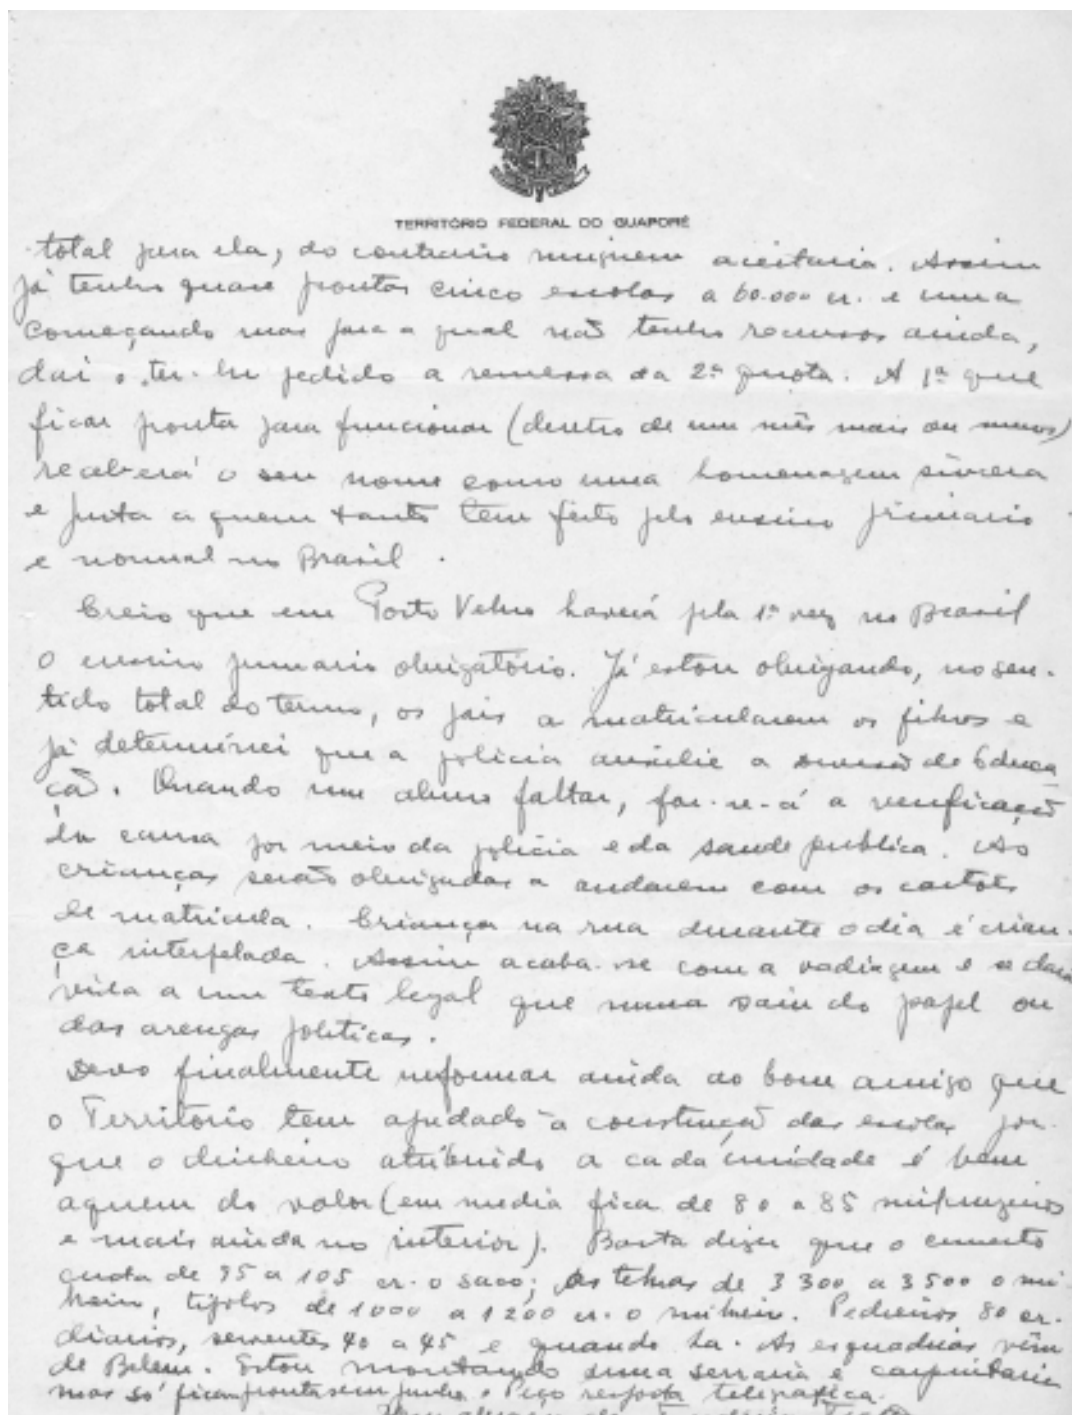 TERRITÓRIO FEDERAL DO GUAPORÉ
total para ela, do contrario ninguem aceitaria. Assim
já tenho quase prontas cinco escolas a 60.000 cr. e uma
começando mas para a qual não tenho recursos ainda,
dai o ter-lhe pedido a remessa da 2ª quota. A 1ª que
ficar pronta para funcionar (dentro de um mês mais ou menos)
receberá o seu nome como uma homenagem sincera
e justa a quem tanto tem feito pelo ensino primario
e normal no Brasil.
Creio que em Porto Velho haverá pela 1ª vez no Brasil
o ensino primario obrigatório. Já estou obrigando, no sen-
tido total do termo, os pais a matricularem os filhos e
já determinei que a policia auxilie a Divisão de Educa
ção. Quando um aluno faltar, far-se-á a verificação
da causa por meio da policia e da saude publica. As
crianças serão obrigadas a andarem com os cartões
de matricula. Criança na rua durante o dia é crian-
ça interpelada. Assim acaba-se com a vadiagem e se dará
vida a um texto legal que nunca saiu do papel ou
das arengas politicas.
Devo finalmente informar ainda ao bom amigo que
o Territorio tem ajudado à construção das escolas por-
que o dinheiro atribuido a cada unidade é bem
aquem do valor (em media fica de 80 a 85 mil cruzeiros
e mais ainda no interior). Basta dizer que o cimento
custa de 95 a 105 cr. o saco; as telhas de 3300 a 3500 o mi-
lheiro, tijolos de 1000 a 1200 cr. o milheiro. Pedreiros 80 cr.
diarios, serventes 40 a 45 e quando ha. As esquadrias vêm
de Belem. Estou montando uma serraria e carpintaria
mas só ficam prontas em junho. Peço resposta telegrafica.